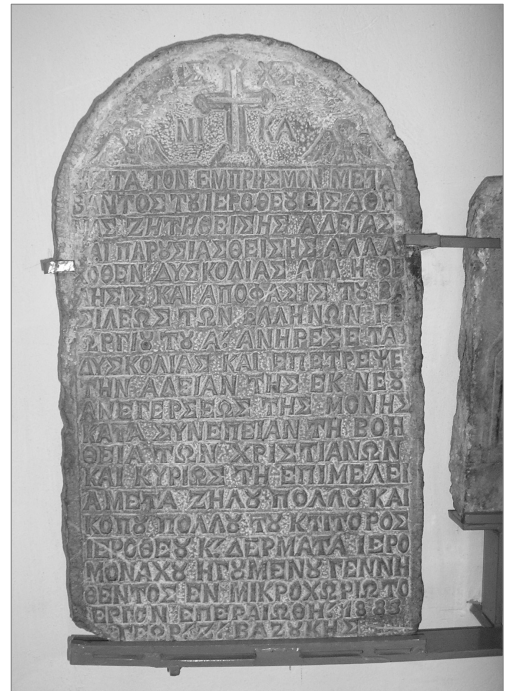 ΙΣ ΧΣ
ΝΙ ΚΑ
ΤΑ ΤΟΝ ΕΜΠΡΗΣΜΟΝ ΜΕΤΑ
ΑΝΤΟΣ ΤΟΥ ΙΕΡΟΘΕΟΥ ΕΙΣ ΑΘΗ
ΑΣ ΖΗΤΗΘΕΙΣΗΣ ΑΔΕΙΑΣ
ΑΙ ΠΑΡΟΥΣΙΑΣΘΕΙΣΗΣ ΑΛΛΑ
ΟΘΕΝ ΔΥΣΚΟΛΙΑΣ ΑΛΛ Η ΘΕ
ΛΗΣΙΣ ΚΑΙ ΑΠΟΦΑΣΙΣ ΤΟΥ ΒΑ
ΣΙΛΕΩΣ ΤΩΝ ΕΛΛΗΝΩΝ ΓΕ
ΩΡΓΙΟΥ ΤΟΥ Α ΑΝΗΡΕΣΕ ΤΑ
ΔΥΣΚΟΛΙΑΣ ΚΑΙ ΕΠΕΤΡΕΨΕ
ΤΗΝ ΑΔΕΙΑΝ ΤΗΣ ΕΚ ΝΕΟΥ
ΑΝΕΓΕΡΣΕΩΣ ΤΗΣ ΜΟΝΗΣ
ΚΑΤΑ ΣΥΝΕΠΕΙΑΝ ΤΗ ΒΟΗ
ΘΕΙΑ ΤΩΝ ΧΡΙΣΤΙΑΝΩΝ
ΚΑΙ ΚΥΡΙΩΣ ΤΗ ΕΠΙΜΕΛΕΙ
Α ΜΕΤΑ ΖΗΛΟΥ ΠΟΛΛΟΥ ΚΑΙ
ΚΟΠΟΥ ΠΟΛΛΟΥ ΤΟΥ ΚΤΙΤΟΡΟΣ
ΙΕΡΟΘΕΟΥ Κ. ΔΕΡΜΑΤΑ ΙΕΡΟ
ΜΟΝΑΧΟΥ ΗΓΟΥΜΕΝΟΥ ΓΕΝΝΗ
ΘΕΝΤΟΣ ΕΝ ΜΙΚΡΟΧΩΡΙΩ ΤΟ
ΕΡΓΟΝ ΕΠΕΡΑΙΩΘΗ 1885
ΓΕΩΡ. Ζ. ΒΑΖΟΥΚΗΣ